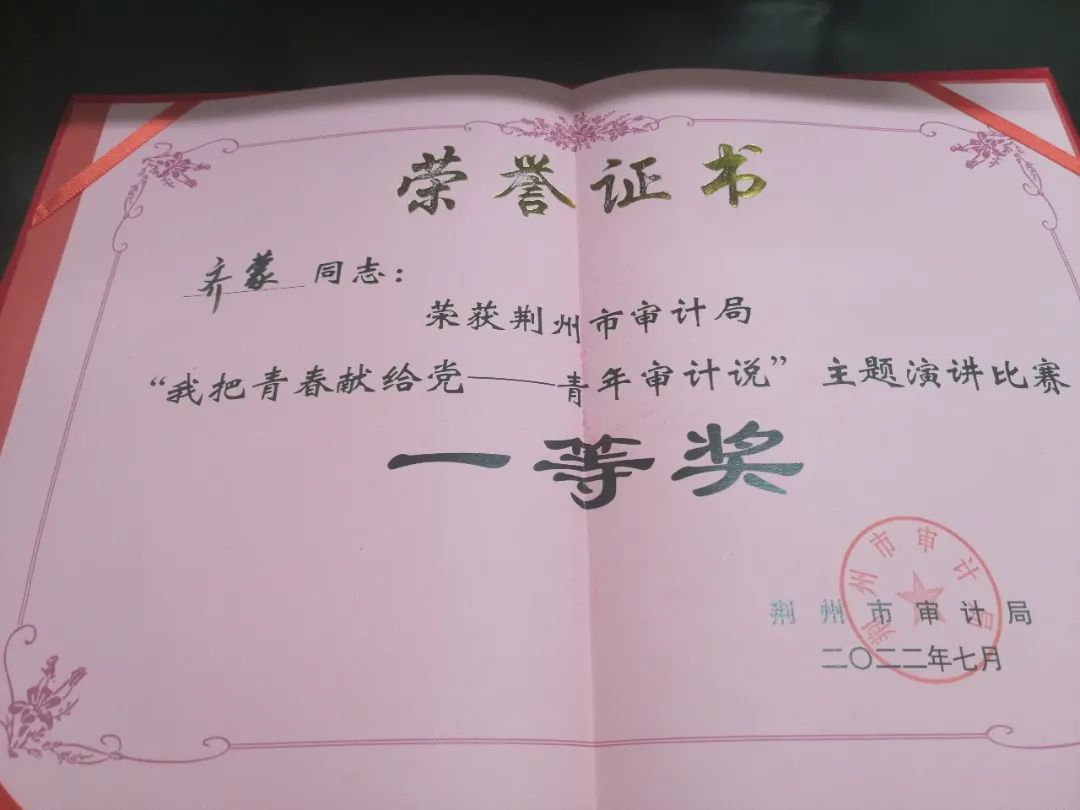 荣誉证书
齐蒙 同志：
荣获荆州市审计局
“我把青春献给党——青年审计说”主题演讲比赛
一等奖
荆州市审计局
荆州市审计局
二〇二二年七月